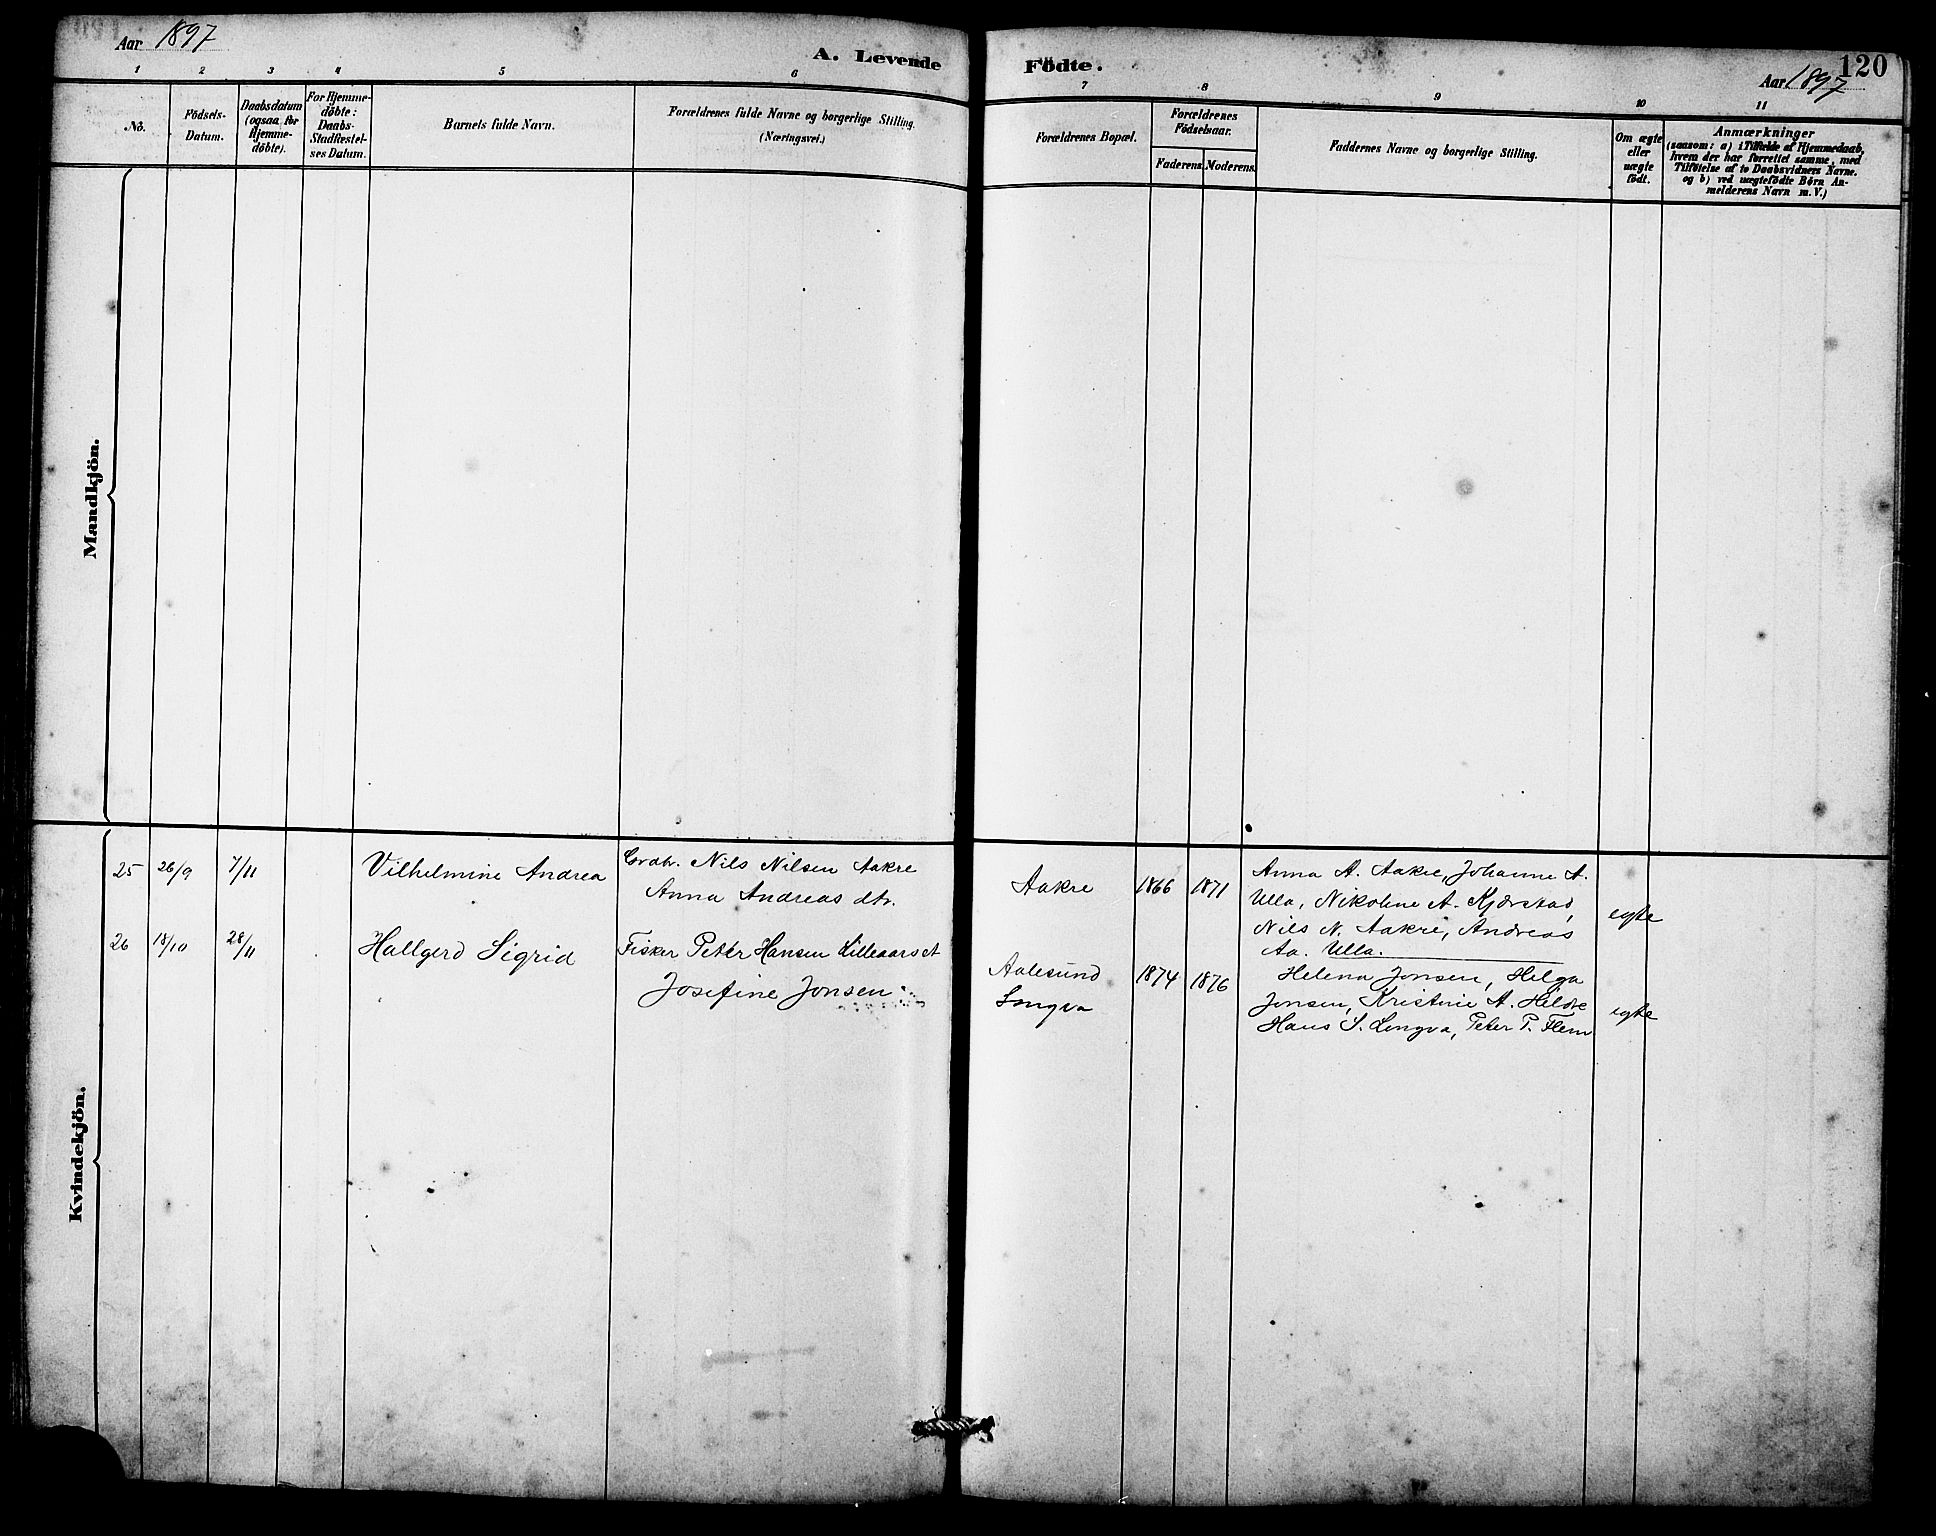 Aar 1897
A. Levende
Födte.
Aar 1897
120
1 2 3 4 5 6 7 8 9 10 11
No.
Födsels-
Datum.
Daabsdatum
(ogsaa for
Hjemme-
döbte).
For Hjemme-
döbte:
Daabs-
Stadfæstel-
ses Datum.
Barnets fulde Navn.
Forældrenes fulde Navne og borgerlige Stilling.
(Næringsvei.)
Forældrenes Bopæl.
Forældrenes
Födselsaar.
Faderens. Moderens.
Faddernes Navne og borgerlige Stilling.
Om ægte
eller
uægte
födt.
Anmærkninger
(saasom: a) i Tilfælde af Hjemmedaab,
hvem der har forrettet samme, med
Tilföielse af to Daabsvidners Navne.
og b) ved uægtefödte Börn An-
melderens Navn m.V.)
Mandkjön.
Kvindekjön.
25 26/9 7/11 Vilhelmine Andrea
Grdbr. Nils Nilsen Aakre
Anna Andreas dtr.
Aakre 1866 1871
Anna A. Aakre, Johanne A.
Ulla, Nikoline A. Kjærstad,
Nils N. Aakre, Andreas
Aa. Ulla.
egte
26 18/10 28/11 Hallgerd Sigrid
Fisker Peter Hansen Lilleaarset
Josefine Jonsen
Aalesund
Longva
1874 1876
Helena Jonsen, Helga
Jonsen, Kristine A. Heldre
Hans S. Longva, Peter P. Flem
egte